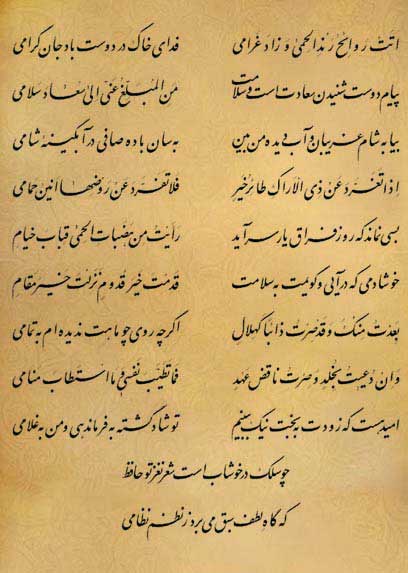 اتت روائح رند الحمی و زاد غرامی فدای خاک در دوست باد جان گرامی
پیام دوست شنیدن سعادت است و سلامت من المبلغ عنی الی سعاد سلامی
بیا به شام غریبان و آب دیده من بین به سان باده صافی در آبگینه شامی
اذا تغرد عن ذی الاراک طائر خیر فلا تفرد عن روضها انین حمامی
بسی نماند که روز فراق یار سر آید رأیت من هضبات الحمی قباب خیام
خوشا دمی که در آیی و گویمت به سلامت قدمت خیر قدوم نزلت خیر مقام
بعدت منک و قد صرت ذائبا کهلال اگرچه روی چو ماهت ندیده‌ام به تمامی
و ان دعیت بخلد و صرت ناقض عهد فما تطیب نفسی و ما استطاب منامی
امید هست که زودت به بخت نیک ببینم تو شاد گشته به فرماندهی و من به غلامی
چو سلک در خوشاب است شعر نغز تو حافظ
که گاه لطف سبق می برد ز نظم نظامی